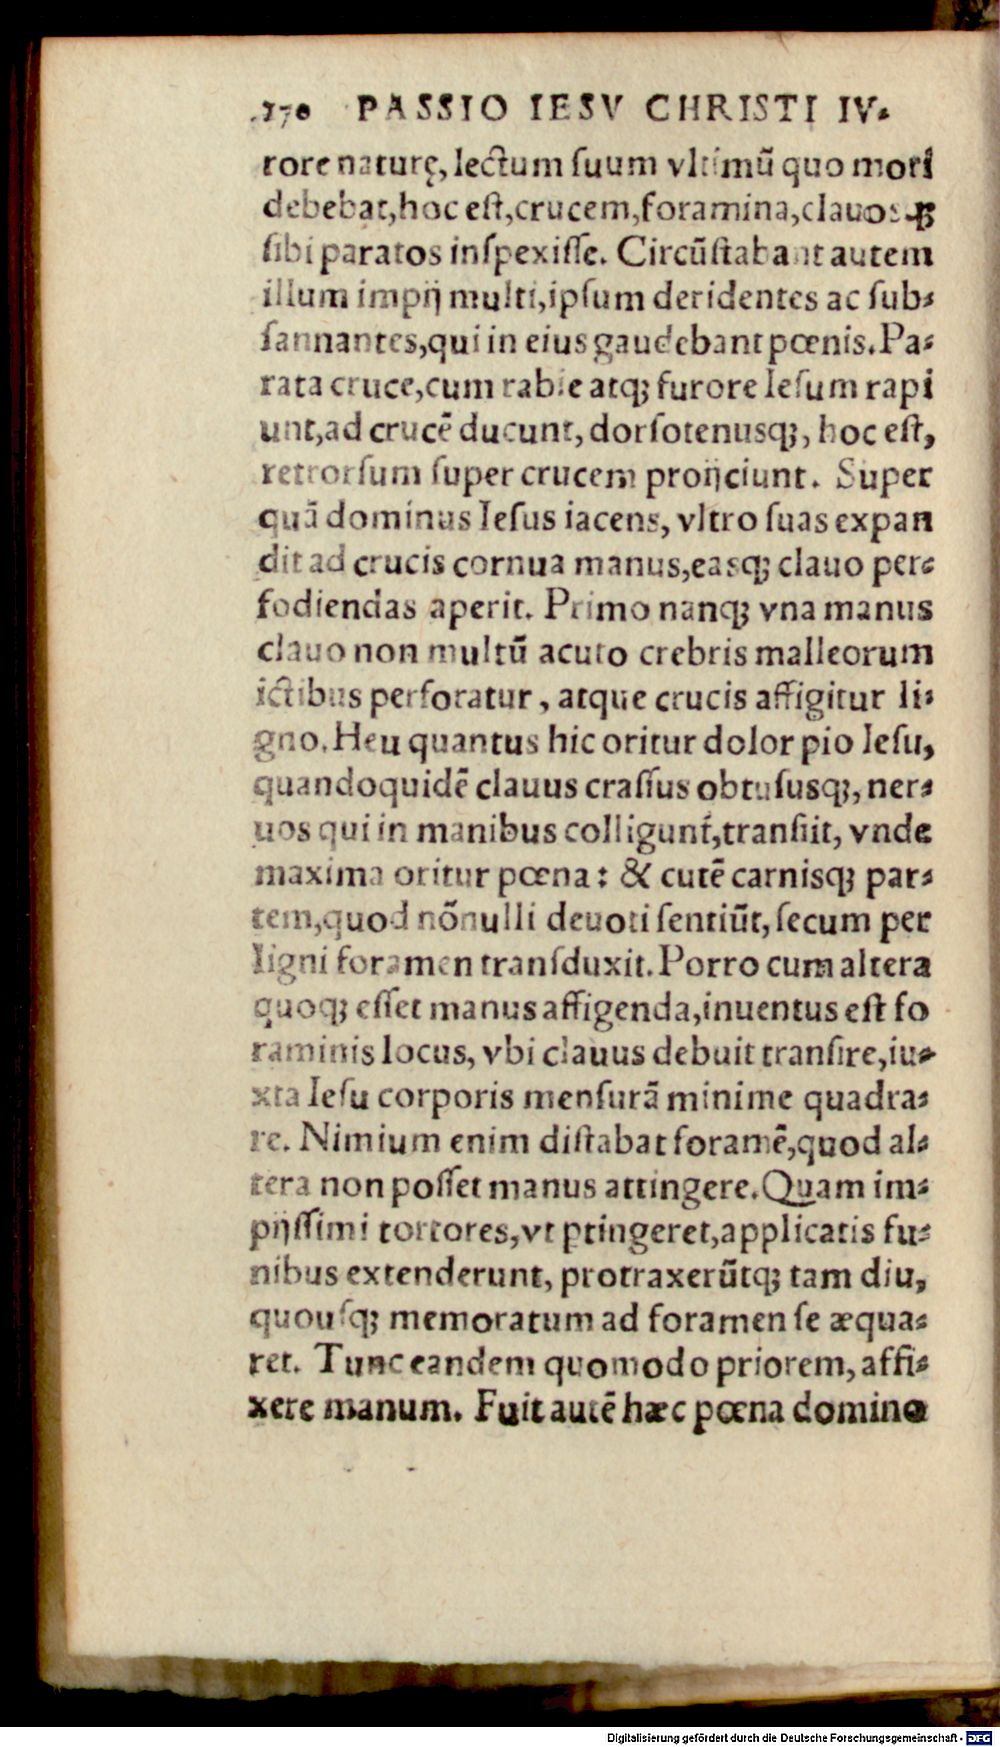 170 PASSIO IESV CHRISTI IV.
rore naturę, lectum ſuum vltimũ quo mori
debebat, hoc eſt, crucem, foramina, clauosq́;
ſibi paratos inſpexiſſe. Circũſtabant autem
illum impij multi, ipſum deridentes ac ſub-
ſannantes, qui in eius gaudebant pœnis. Pa-
rata cruce, cum rabie atq; furore Ieſum rapi
unt, ad crucẽ ducunt, dorſotenusq;, hoc eſt,
retrorſum ſuper crucem proijciunt. Super
quã dominus Ieſus iacens, vltro ſuas expan
dit ad crucis cornua manus, easq; clauo per-
fodiendas aperit. Primo nanq; vna manus
clauo non multũ acuto crebris malleorum
ictibus perforatur, atque crucis affigitur li-
gno. Heu quantus hic oritur dolor pio Ieſu,
quandoquidẽ clauus craſſus obtuſusq;, ner-
uos qui in manibus colligunt́, tranſiit, vnde
maxima oritur pœna: & cutẽ carnisq; par-
tem, quod nõnulli deuoti ſentiũt, ſecum per
ligni foramen tranſduxit. Porro cum altera
quoq; eſſet manus affigenda, inuentus eſt fo
raminis locus, vbi clauus debuit tranſire, iu-
xta Ieſu corporis menſurã minime quadra-
re. Nimium enim diſtabat foramẽ, quod al-
tera non poſſet manus attingere. Quam im-
pijſſimi tortores, vt ꝑtingeret, applicatis fu-
nibus extenderunt, protraxerũtq; tam diu,
quouſq; memoratum ad foramen ſe æqua-
ret. Tunc eandem quomodo priorem, affi-
xere manum. Fuit autẽ hæc pœna domino
Digitalisierung gefördert durch die Deutsche Forschungsgemeinschaft - DFG